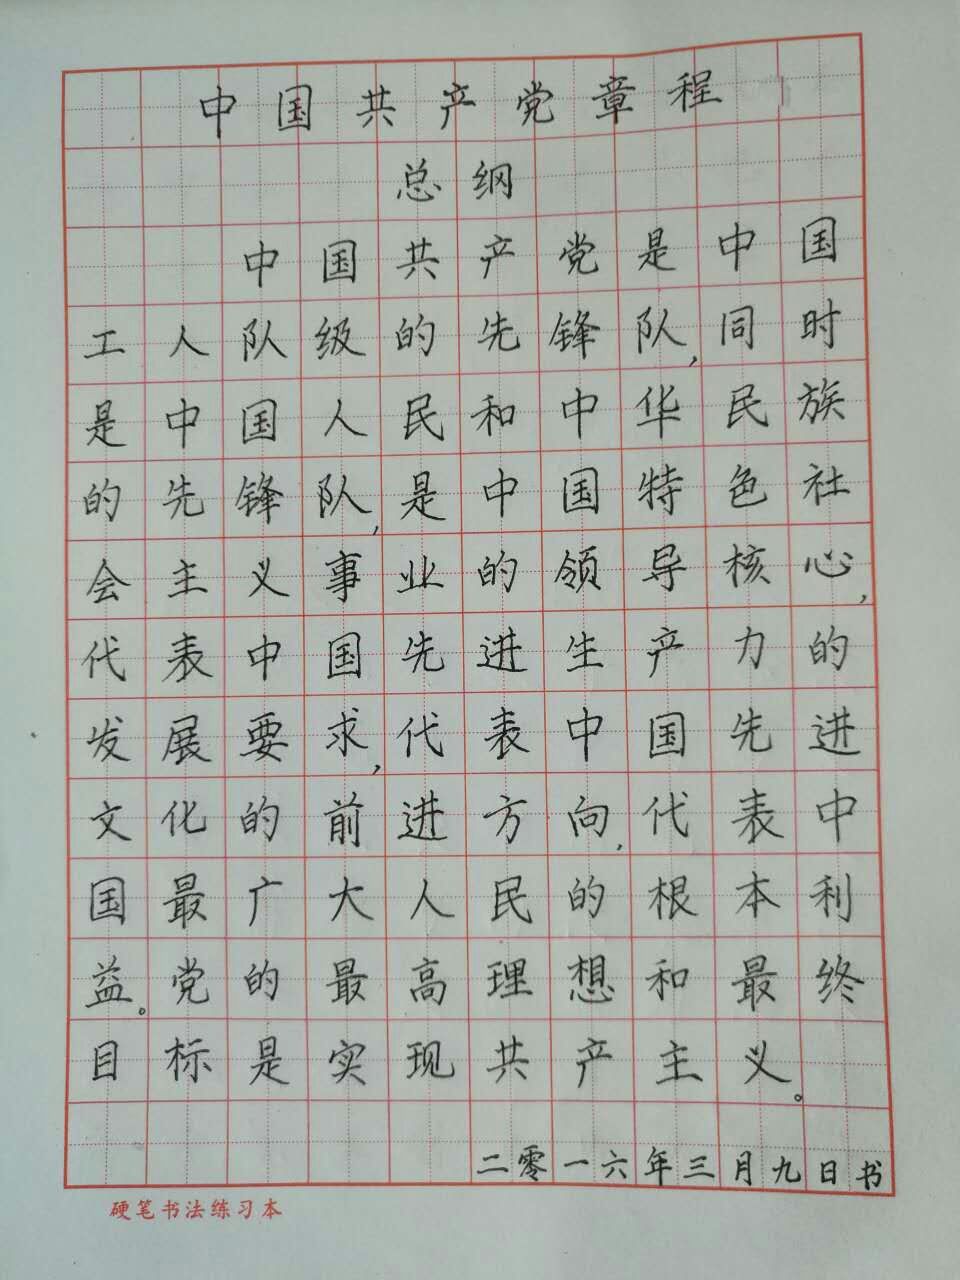 中国共产党章程
总纲
中国共产党是中国
工人队级的先锋队,同时
是中国人民和中华民族
的先锋队,是中国特色社
会主义事业的领导核心,
代表中国先进生产力的
发展要求,代表中国先进
文化的前进方向,代表中
国最广大人民的根本利
益。党的最高理想和最终
目标是实现共产主义。
二零一六年三月九日书
硬笔书法练习本